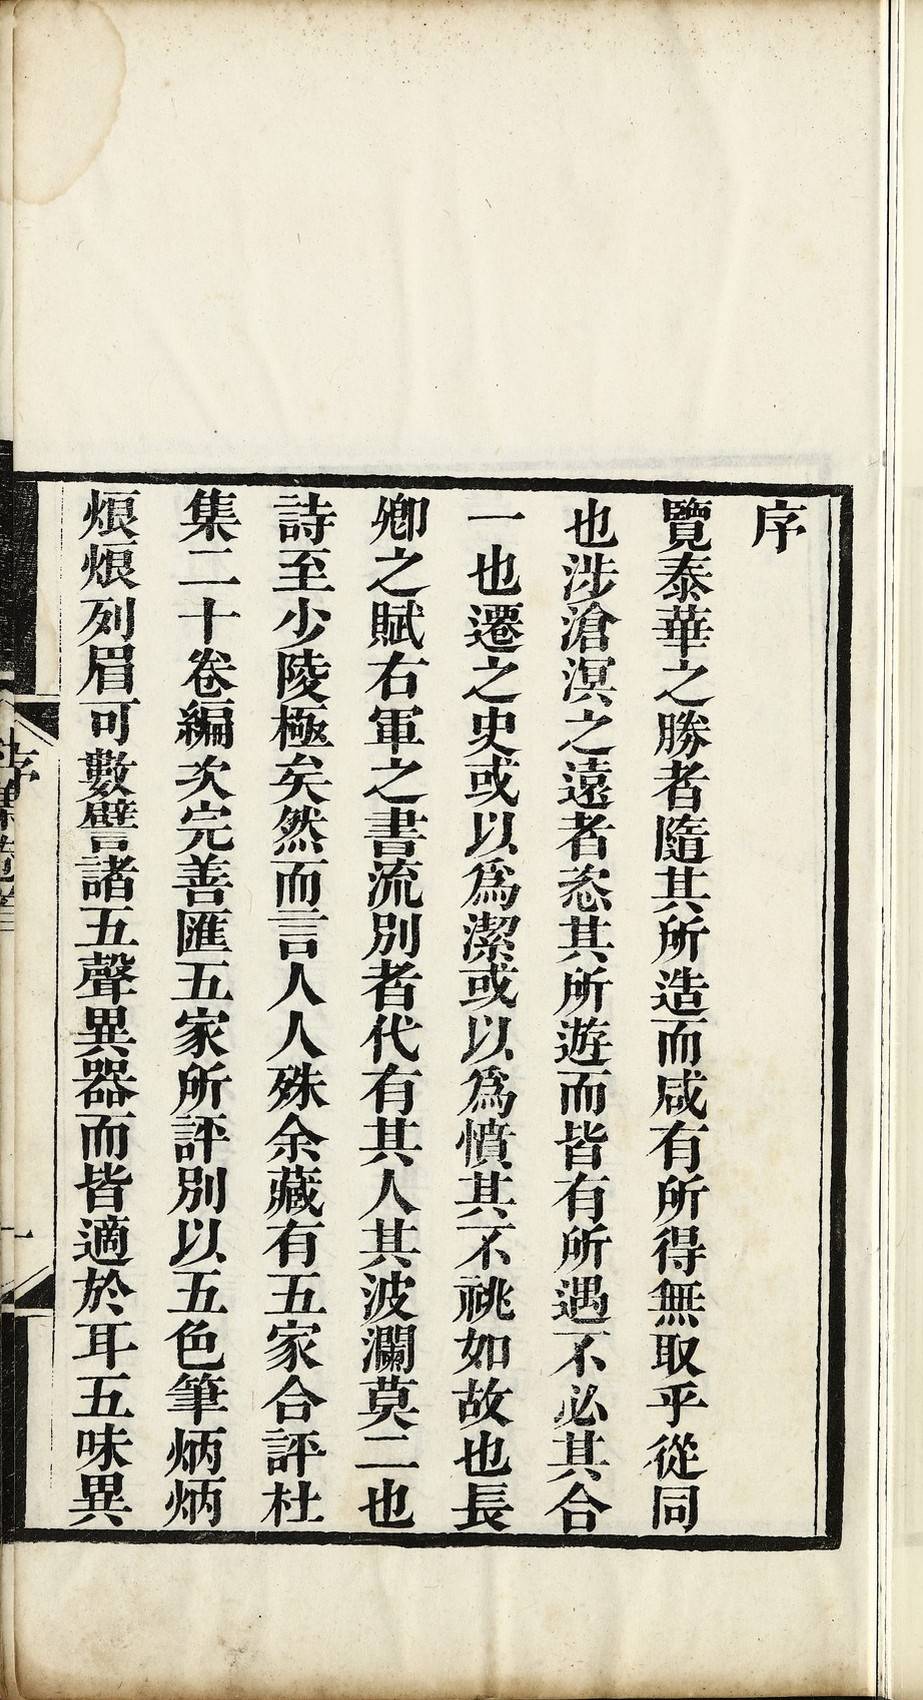 序
覽泰華之勝者隨其所造而咸有所得無取乎從同
也涉滄溟之遠者恣其所遊而皆有所遇不必其合
一也遷之史或以爲潔或以爲憤其不祧如故也長
卿之賦右軍之書流別者代有其人其波瀾莫二也
詩至少陵極矣然而言人人殊余藏有五家合評杜
集二十卷編次完善匯五家所評別以五色筆炳炳
烺烺列眉可數譬諸五聲異器而皆適於耳五味異
序
一